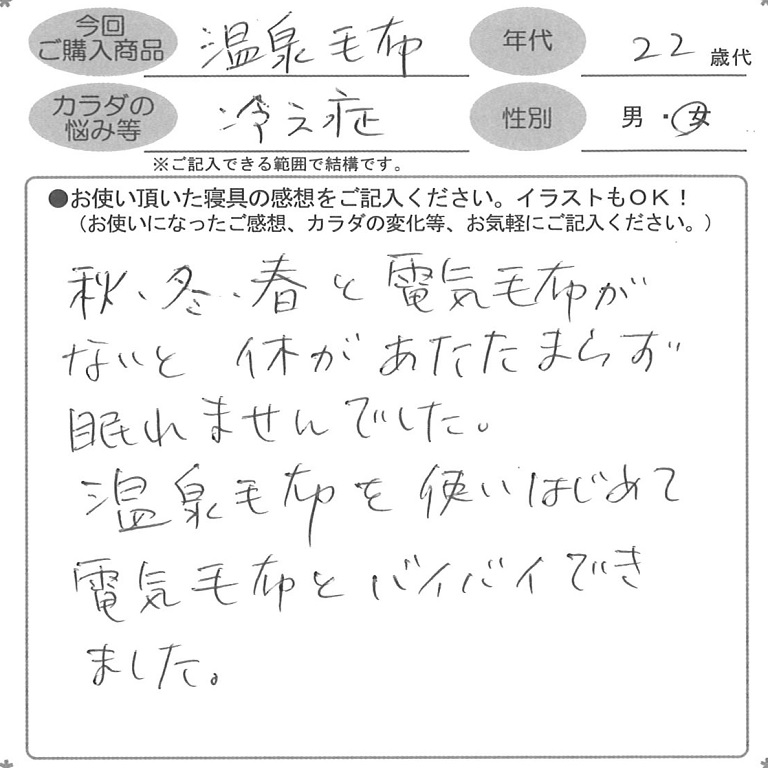 今回
ご購入商品
温泉毛布
年代
22 歳代
カラダの
悩み等
冷え症
性別
男・女
※ご記入できる範囲で結構です。
●お使い頂いた寝具の感想をご記入ください。イラストもOK!
(お使いになったご感想、カラダの変化等、お気軽にご記入ください。)
秋、冬、春と電気毛布が
ないと 体があたたまらず
眠れませんでした。
温泉毛布を使いはじめて
電気毛布とバイバイでき
ました。